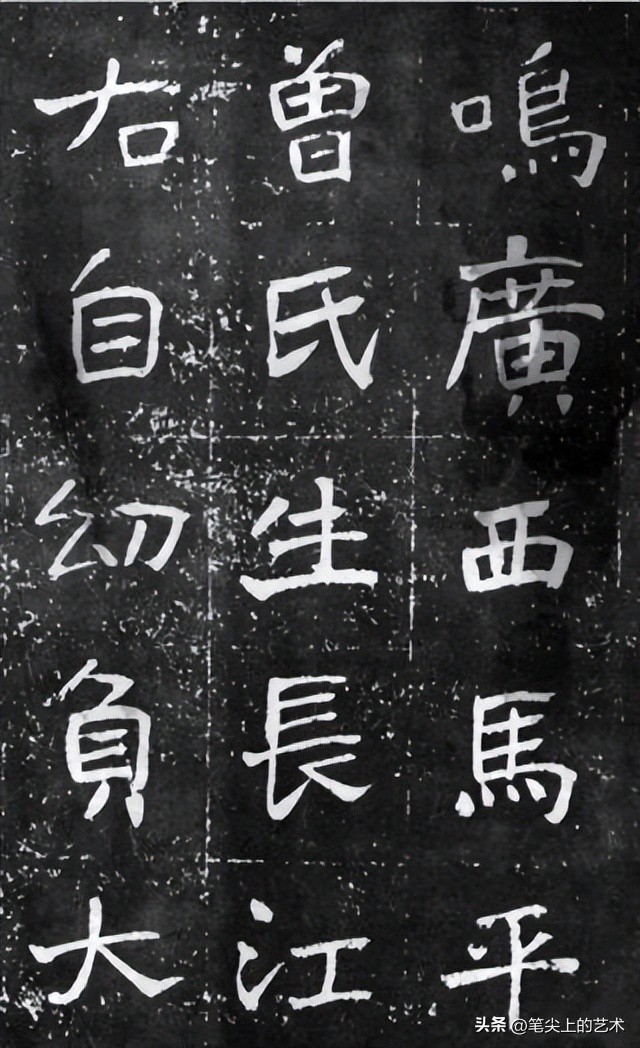 鳴廣西馬平
曽氏生長江
右自幼負大
头条@笔尖上的艺术